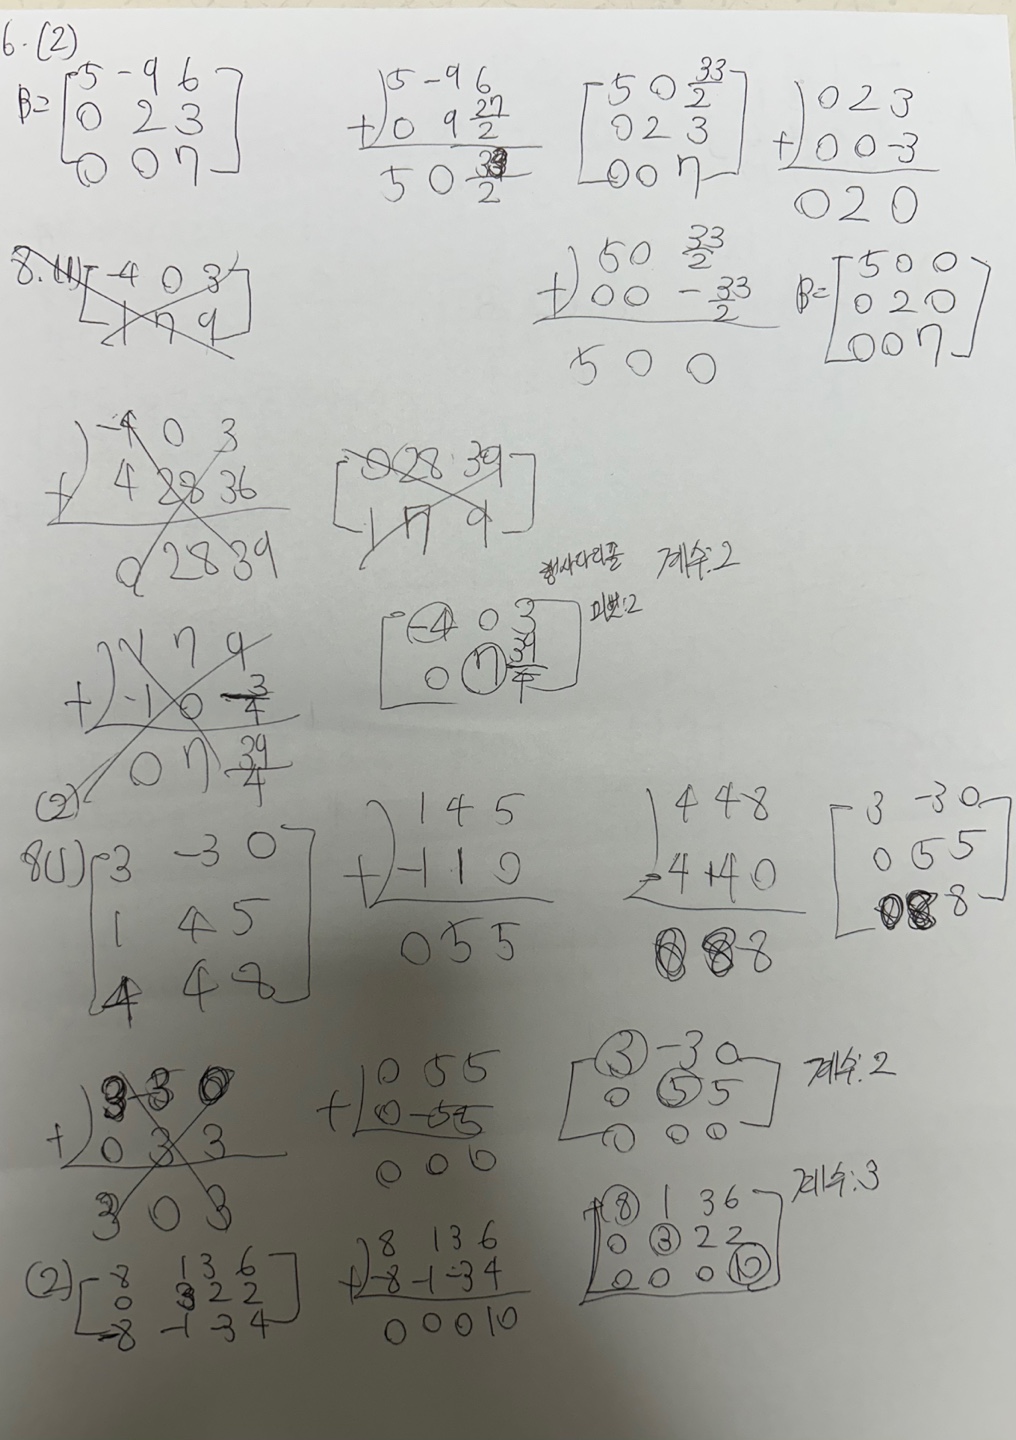 6.(2)
B= [5 -9 6
0 2 3
0 0 7]
5 -9 6
+) 0 9 27/2
5 0 33/2
[5 0 33/2
0 2 3
0 0 7]
0 2 3
+) 0 0 -3
0 2 0
5 0 33/2
+) 0 0 -33/2
5 0 0
B= [5 0 0
0 2 0
0 0 7]
8.(1) [-4 0 3
1 7 9]
-4 0 3
+) 4 28 36
0 28 39
[0 28 39
1 7 9]
행사다리꼴 계수:2
[-4 0 3
0 7 39/4]
피벗:2
1 7 9
+) -1 0 -3/4
0 7 39/4
(2)
8(1) [3 -3 0
1 4 5
4 4 8]
1 4 5
+) -1 1 0
0 5 5
4 4 8
-4 +4 0
8 8
[3 -3 0
0 5 5
0 8 8]
3 -3 0
+) 0 3 3
3 0 3
0 5 5
+) 0 -5 5
0 0 0
[3 -3 0
0 5 5
0 0 0]
계수:2
(2) [8 1 3 6
0 3 2 2
-8 -1 -3 4]
8 1 3 6
+) -8 -1 -3 4
0 0 0 10
[8 1 3 6
0 3 2 2
0 0 0 10]
계수:3